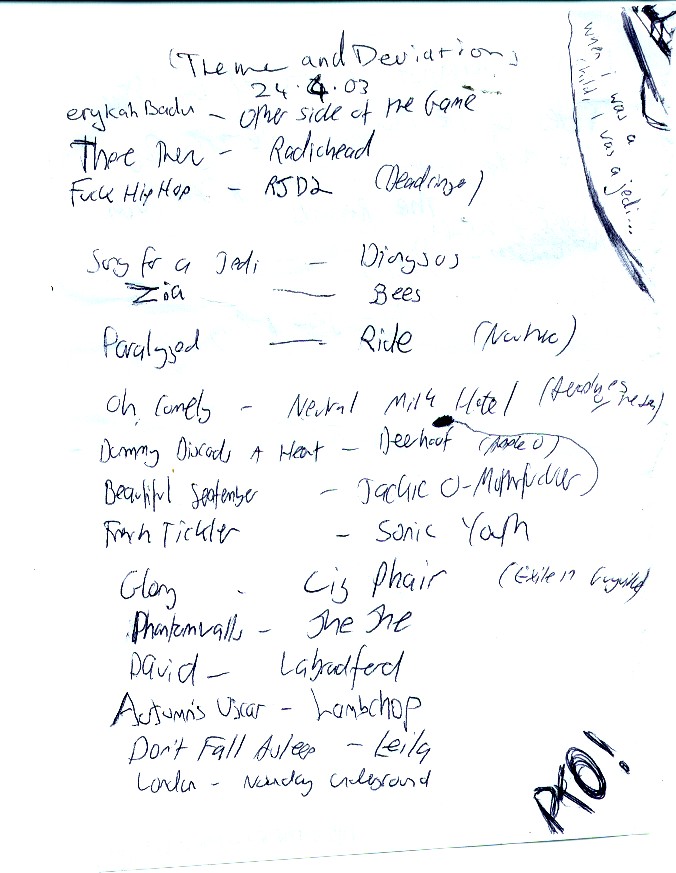 (Theme and Deviation)
24.4.03
erykah Badu - Other side of the Game
There There - Radiohead
Fuck Hip Hop - RJD2 (Deadringer)
Song for a Jedi - Dionysos
Zia - Bees
Paralyzed - Ride
Oh Comely - Neutral Milk Hotel
Dummy Discards A Heart - Deerhoof (Apple O)
Beautiful September - Jackie O-Motherfucker
French Tickler - Sonic Youth
Glory - Liz Phair (Exile in Guyville)
Phantom walls - The The
David - Labradford
Autumn's Vicar - Lambchop
Don't Fall Asleep - Leila
London - Noonday Underground
PTO!
when I was a
child, I was a jedi...